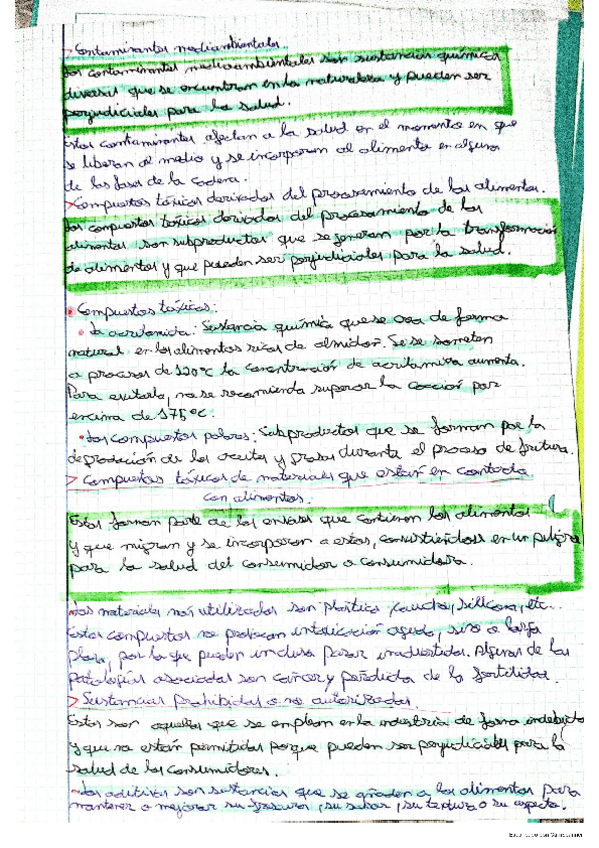 > Contaminantes medioambientales.
Los contaminantes medioambientales son sustancias químicas
diversas que se encuentran en la naturaleza y pueden ser
perjudiciales para la salud.
Estos contaminantes afectan a la salud en el momento en que
se liberan al medio y se incorporan al alimento en alguna
de las fases de la cadena.
> Compuestos tóxicos derivados del procesamiento de los alimentos.
Los compuestos tóxicos derivados del procesamiento de los
alimentos son subproductos que se generan por la transformación
de alimentos y que pueden ser perjudiciales para la salud.
• Compuestos tóxicos:
• La acrilamida: Sustancia química que se crea de forma
natural en los alimentos ricos de almidón. Si se someten
a procesos de 120ºC la concentración de acrilamida aumenta.
Para evitarla, no se recomienda superar la cocción por
encima de 175ºC.
• Los compuestos polares: Subproductos que se forman por la
degradación de los aceites y grasas durante el proceso de fritura.
> Compuestos tóxicos de materiales que están en contacto
con alimentos.
Estos forman parte de los envases que contienen los alimentos
y que migran y se incorporan a estos, convirtiéndose en un peligro
para la salud del consumidor o consumidora.
Los materiales más utilizados son plástico, caucho, silicona, etc...
Estos compuestos no producen intoxicación aguda, sino a largo
plazo, por lo que pueden incluso pasar inadvertidos. Algunas de las
patologías asociadas son cáncer y pérdida de la fertilidad.
> Sustancias prohibidas o no autorizadas.
Estos son aquellos que se emplean en la industria de forma indebida
y que no están permitidos porque pueden ser perjudiciales para la
salud de los consumidores.
Los aditivos son sustancias que se añaden a los alimentos para
mantener o mejorar su frescura, su sabor, su textura o su aspecto.